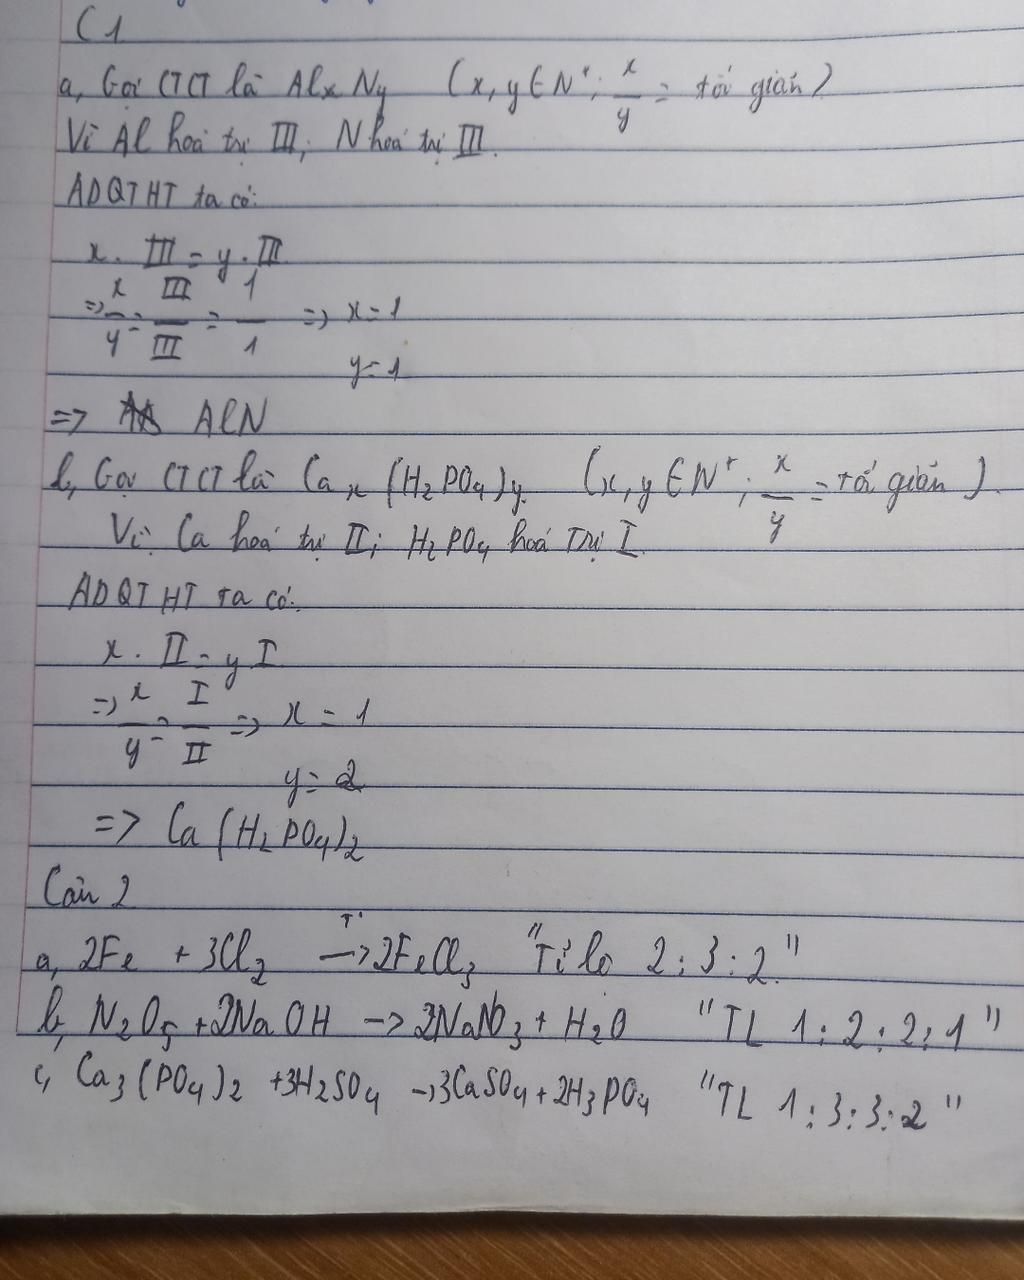 C1
a, Gọi CTCT là AlxNy (x, y ∈ N*; x/y = tối giản)
Vì Al hoá trị III; N hoá trị III.
ADQTHT ta có:
x. III = y. III
=> x/y = III/III = 1/1 => x = 1
y = 1
=> AlN
b, Gọi CTCT là Cax(H2PO4)y. (x, y ∈ N*; x/y = tối giản)
Vì: Ca hoá trị II; H2PO4 hoá trị I
ADQTHT ta có:
x. II = y I
=> x/y = I/II => x = 1
y = 2
=> Ca(H2PO4)2
Câu 2
a, 2Fe + 3Cl2 -T°-> 2FeCl3 "Tỉ lệ 2:3:2"
b, N2O5 + 2NaOH -> 2NaNO3 + H2O "TL 1:2:2:1"
c, Ca3(PO4)2 + 3H2SO4 -> 3CaSO4 + 2H3PO4 "TL 1:3:3:2"